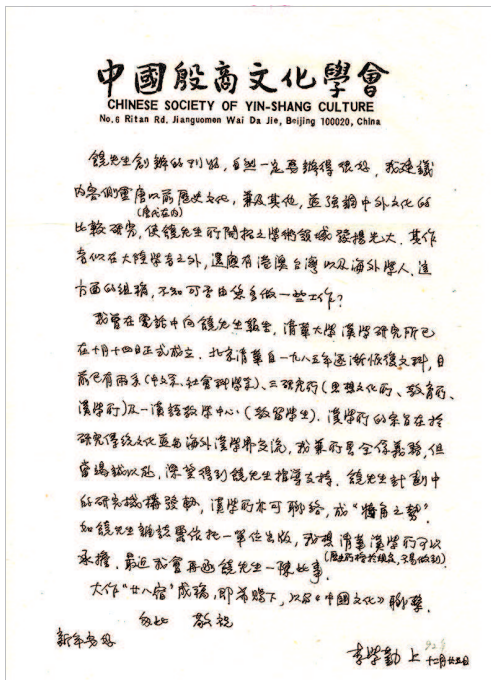 中國殷商文化學會
CHINESE SOCIETY OF YIN-SHANG CULTURE
No.6 Ritan Rd. Jianguomen Wai Da Jie, Beijing 100020, China
饒先生創辦的刊物，自然一定要辦得很好，我建議
内容側重唐以前歷史文化，兼及其他，並強調中外文化的
(唐代在内)
比較研究，使饒先生所開拓之學術領域發揚光大．其作
者似在大陸學者之外，還應有港澳台灣以及海外學人．這
方面的組稿，不知可否由您多做一些工作？
我曾在電話中向饒先生報告，清華大學漢學研究所已
在十月十四日正式成立．北京清華自一九八五年逐漸恢復文科，目
前已有兩系(中文系、社會科學系)、三研究所(思想文化所、教育所、
漢學所)及一漢語教學中心(教留學生)．漢學所的宗旨在於
研究傳統文化並與海外漢學界交流，我兼所長全係義務，但
當竭誠以赴，深望得到饒先生指導支持．饒先生計劃中
的研究機構發軔，漢學所亦可聯絡，成“犄角之勢”．
如饒先生雜誌需依托一單位出版，我想清華漢學所可以
承擔．最近我會再函饒先生一陳此事．
大作“廿八宿”成稿，即希賜下，以與《中國文化》聯繫．
匆此 敬祝
新年安好
李學勤 上
十二月廿五日